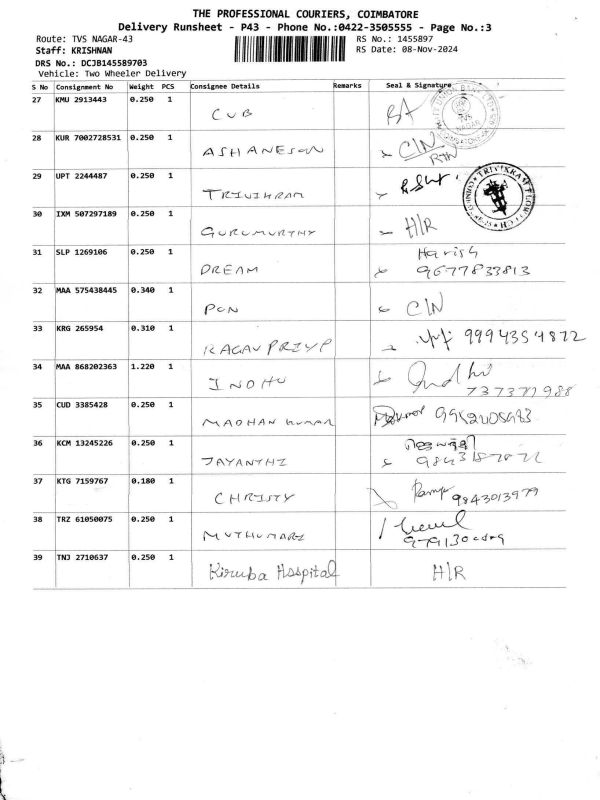 THE PROFESSIONAL COURIERS, COIMBATORE
Delivery Runsheet - P43 - Phone No.:0422-3505555 - Page No.:3
Route: TVS NAGAR-43 RS No.: 1455897
Staff: KRISHNAN RS Date: 08-Nov-2024
DRS No.: DCJB145589703
Vehicle: Two Wheeler Delivery
S No Consignment No Weight PCS Consignee Details Remarks Seal & Signature
27 KMU 2913443 0.250 1 CUB
TVS NAGAR
28 KUR 7002728531 0.250 1 ASHANESON C/N
29 UPT 2244487 0.250 1 TRIVIKRAM
30 IXM 507297189 0.250 1 GURUMURTHY H/R
31 SLP 1269106 0.250 1 DREAM Harish
9677833813
32 MAA 575438445 0.340 1 PON C/N
33 KRG 265954 0.310 1 RAGAV PRIYP 9994354872
34 MAA 868202363 1.220 1 INDHU Indhu
35 CUD 3385428 0.250 1 MADHAN KUMAR
36 KCM 13245226 0.250 1 JAYANTHI
37 KTG 7159767 0.180 1 CHRISTY 9843013979
38 TRZ 61050075 0.250 1 MUTHUMARI
39 TNJ 2710637 0.250 1 Kiruba Hospital H/R